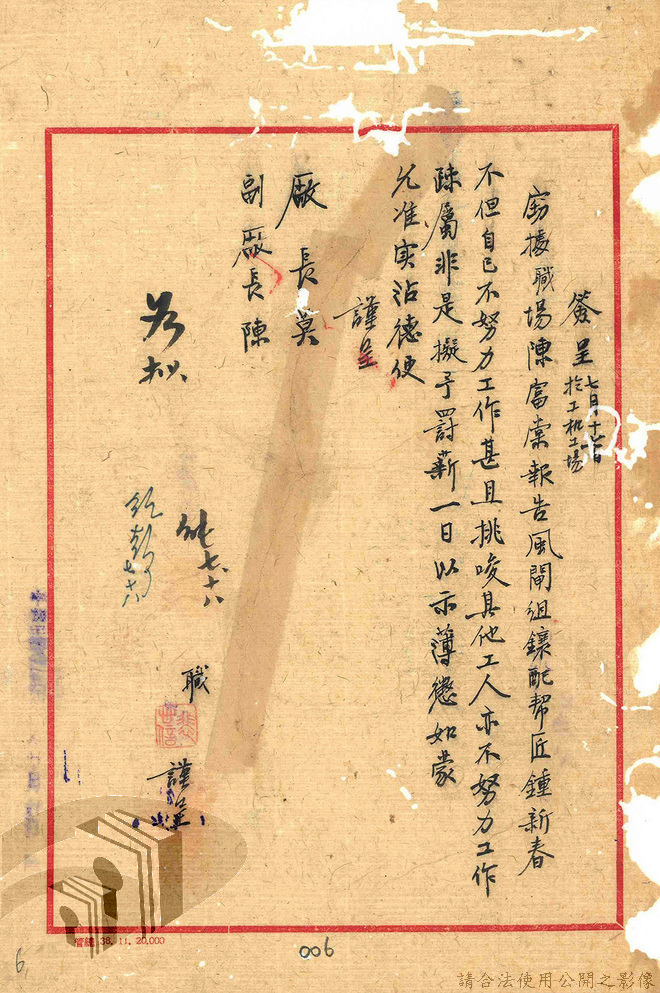 簽呈 七月十七日
於工机工場
窃據職場陳富棠報告風閘組鑲配幫匠鍾新春
不但自己不努力工作甚且挑唆其他工人亦不努力工作
疎屬非是擬予罰薪一日以示薄懲如蒙
允准实沾德便
謹呈
廠長莫
副廠長陳
職
謹呈
若拟
七、十八
七、十八
管總 38. 11. 20,000
006
6
請合法使用公開之影像